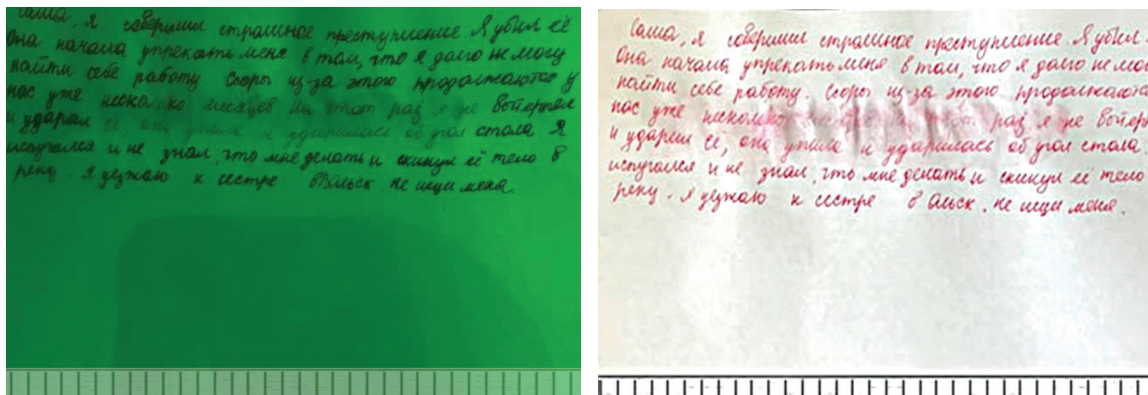 Саша, я совершил страшное преступление Я убил её
Она начала упрекать меня в том, что я долго не могу
найти себе работу Ссоры из-за этого продолжаются у
нас уже несколько месяцев На этот раз я не выдержал
и ударил её, она упала и ударилась об угол стола Я
испугался и не знал, что мне делать и скинул её тело в
реку. Я уезжаю к сестре в Вольск. Не ищи меня.
Саша, я совершил страшное преступление. Я убил
Она начала упрекать меня в том, что я долго не мог
найти себе работу. Ссоры из-за этого продолжаются
нас уже несколько раз я не
и ударил её, она упала и ударилась об угол стола.
испугался и не знал, что мне делать и скинул её тело
реку. Я уезжаю к сестре в. Не ищи меня.